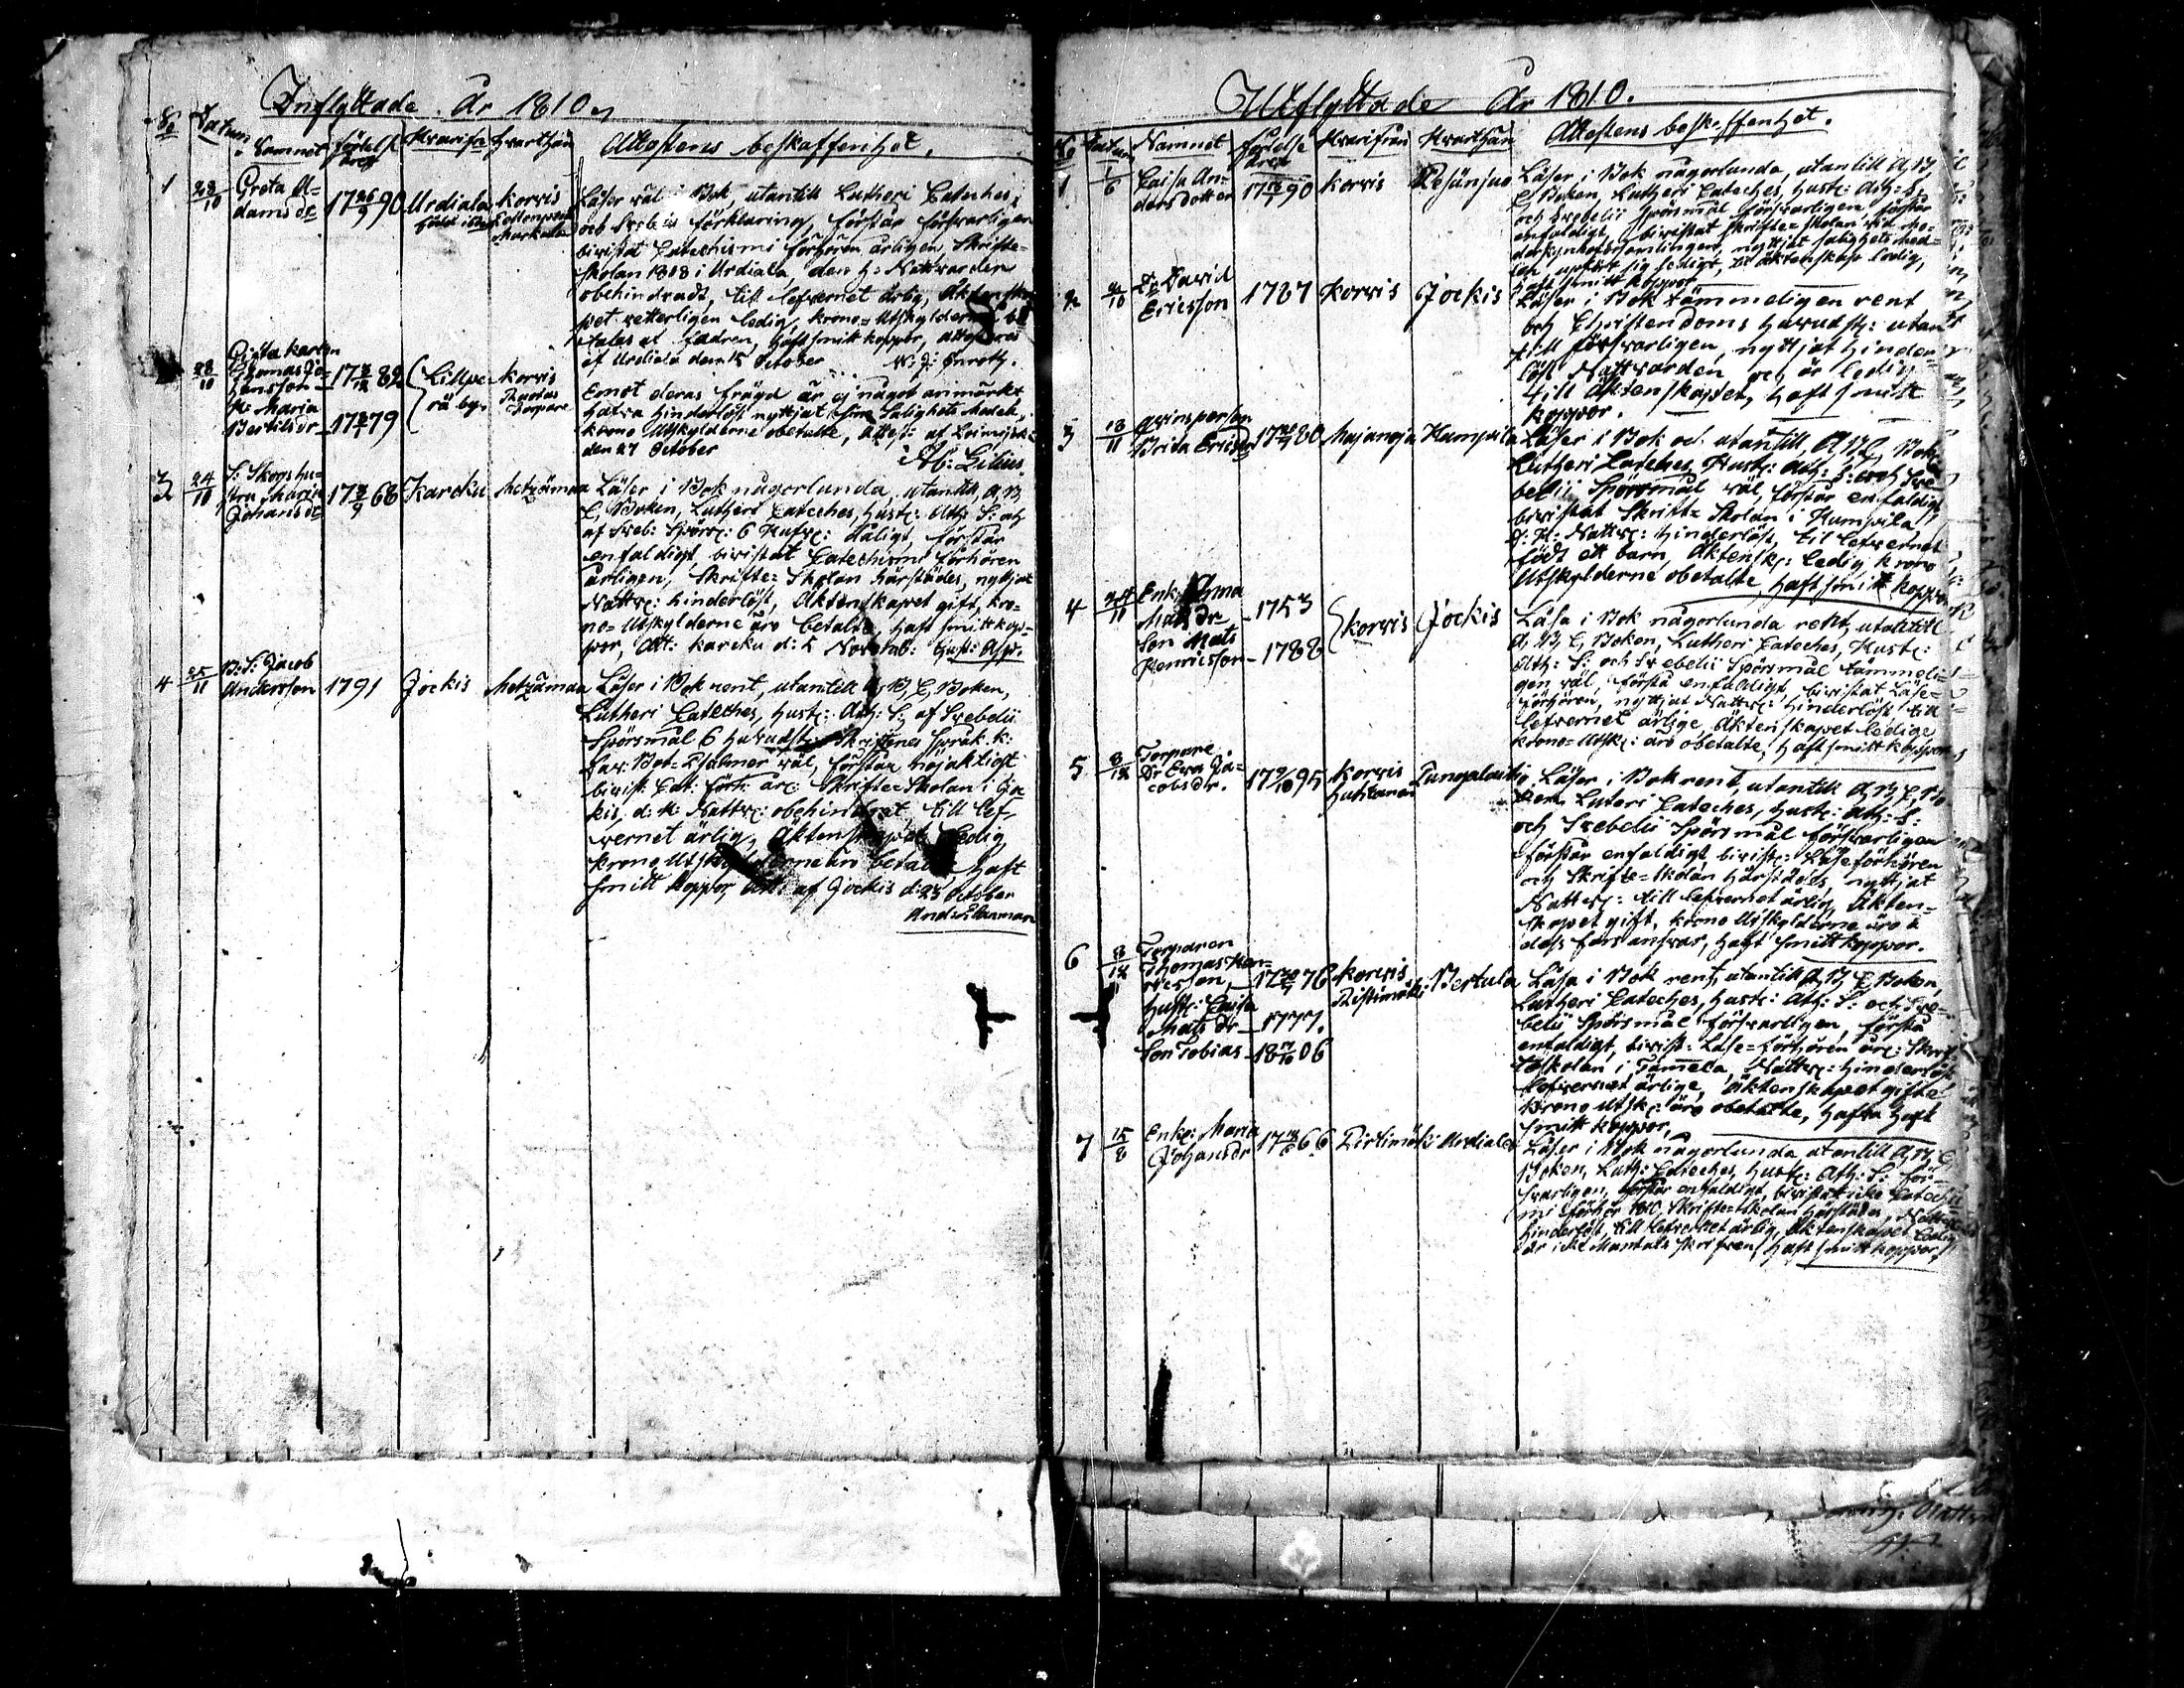 Inflyttade År 1810
No Datum Namnet födelse året Hvarifrån Hvarthän Attestens beskaffenhet.
1 28/10 Greta Adamsdr 17 26/9 90 Urdiala Korvis
Läser väl i Bok, utantill Lutheri Cateches,
och Svebelii förklaring, förstår försvarligen
bivistat Catechismi förhören årligen, Skrifte-
skolan 1808 i Urdiala den h: Nattvarden
obehindradt, till lefvernet ärlig, Äktenska-
pet vetterligen ledig, Krono-Utskylderne be-
tales af fadren, haft smitt koppor, Attesteras
af Urdiala dem 15 October
28/10 Gifta karlen
Thomas Jo-
hansson 17 82
H: Maria
Bertilsdr 17 79
Korvis
Torpare
Emot deras frägd är ej något anmärkt
hafva hinderlöst nyttjat sine Salighets Medel,
Krono Utskylderne obetalte, Attest: af Loimijoki
den 27 October
3 24/11
Maria
Johansdr 17 68 Karcku Metzämaa
Läser i Bok någorlunda, utantill A, B,
C, Boken, Lutheri Cateches, Hustc: Ath: S: och
af Sveb: Spörs: 6 Hufvc: dåligt, förstår
enfaldigt, bivistat Catechismi förhören
årligen, Skrifte-Skolan härstädes, nyttjat
Nattvc: hinderlöst, Äktenskapet gift, Kro-
no-Utskylderne äro betalte, haft smitt kop-
por, Att: Karcku d: 5 Novemb:
4 25/11 Jacob
Andersson 1791 Jockis Metzämaa
Läser i Bok rent, utantill A, B, C, Boken,
Lutheri Cateches, Hustc: Ath: S: af Svebelii
Spörsmål 6 Hufvudst: Skriftenes Språk
Dav: Bot-Psalmer väl, förstår nöjaktigt
bivist: Cat: förh: årc: Skrifte-Skolan i Joc-
kis, d: H: Nattvc: obehindrat, till lef-
vernet ärlig, Äktenskapet Ledig
Krono Utskylderne äro betalte haft
smitt koppor, Att: af Jockis d: 23 October
Utflyttade År 1810.
No Datum Namnet födelse året Hvarifrån Hvarthän Attestens beskaffenhet.
1 1/6 Caisa An-
dersdotter 17 90 Korvis
Läser i Bok någorlunda, utantill A, B,
C, Boken, Lutheri Cateches, Hustc: Ath: S:
och Svebelii Spörsmål försvarligen, förstår
enfaldigt, bivistat Skrifte-Skolan
nyttjat salighets med-
len, upfört sig sedigt, til äktenskap ledig,
haft smitt koppor
2 Dr David
Ericsson 1787 Korvis Jockis
Läser i Bok tämmeligen rent
och Christendoms Hufvudst: utan-
till försvarligen, nyttjat hinder-
löst Nattvarden och är ledig
till Äktenskapet, haft smitt
koppor.
3 18/11 Qvinsperson
Brita Ericsdr 17 80 Humpila
Läser i Bok och utantill, A, B, C, Bok
Lutheri Cateches, Hustc: Ath: S: och Sve-
belii Spörsmål väl, förstår enfaldigt
bivistat Skrifte-Skolan i Humpila
d: H: Nattvc: hinderlöst, til lefvernet
född ett barn, Äktensk: ledig, Krono
Utskylderne obetalte, haft smitt koppor
4 24/11 Enk: Anna
Matsdr 1753
Son Mats
Henricsson 1788
Korvis Jockis
Läsa i Bok någorlunda rent, utantill
A, B, C, Boken, Lutheri Cateches, Hustc:
Ath: S: och Svebelii Spörsmål tämmeli-
gen väl, förstå enfaldigt, bivistat Läse-
förhören, nyttjat Nattvc: hinderlöst till
lefvernet ärlige, Äktenskapet ledige,
Krono-Utsk: äro obetalte, haft smitt koppor
5 8/12 Torpare
Dr Eva Ja-
cobsdr. 17 95 Korvis
Läser i Bok rent, utantill A, B, C, Bo-
ken, Luteri Cateches, Hustc: Ath: S:
och Svebelii Spörsmål försvarligen
förstår enfaldigt, bivistc: Läseförhören
och Skrifte-Skolan härstädes, nyttjat
Nattvc: till lefvernet ärlig, Äkten-
skapet gift, Krono Utskylderne äro å
dess fars ansvar, haft smitt koppor.
6 8/12 Torparen
Thomas Hen-
ricsson, 17 76 Korvis
Ristimäki Bertula
Hustc: Caisa
Matsdr 1777.
Son Tobias 18 06
Läsa i Bok rent, utantill A, B, C, Boken,
Lutheri Cateches, Hustc: Ath: S: och Sve-
belii Spörsmål försvarligen, förstå
enfaldigt, bivist: Läse-förhören årc: Skrif-
teskolan i Tamela, Nattvc: hinderlöst,
lefvernet ärlige, äktenskapet gifte
Krono Utskc: äro obetalte, hafva haft
smitt koppor,
7 15/8 Enkc: Maria
Johansdr 17 66 Urdiala
Läser i Bok någorlunda utantill A, B, C
Boken, Luth: Cateches, Hustc: Ath: S: för-
svarligen, förstår enfaldigt, bivistat icke Catechis-
mi förhör 1810, Skrifte-skolan härstädes, Nattvc:
hinderlöst, till lefvernet ärlig, Äktenskapet ledig
är icke Mantals skrifven, haft smitt koppor,